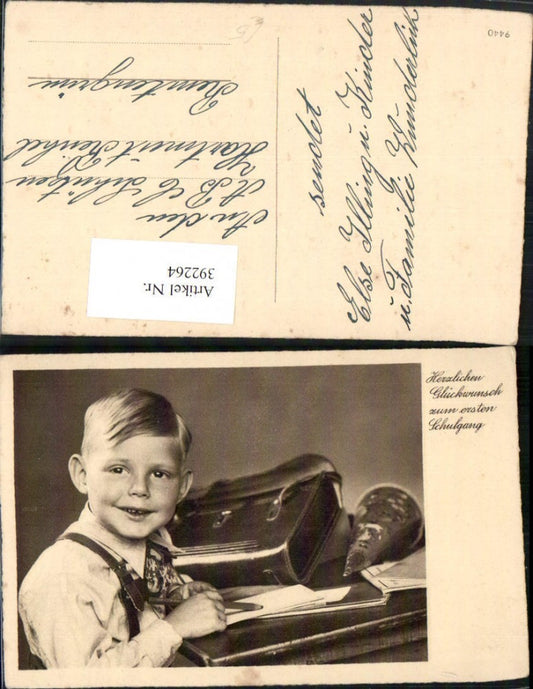 9440
sendet
Else Illing u. Kinder
u. Familie Wunderlich
An den
A B C Schützen
Hartmut Henkel
Remtengrün
Artikel Nr.
392264
Herzlichen
Glückwunsch
zum ersten
Schulgang